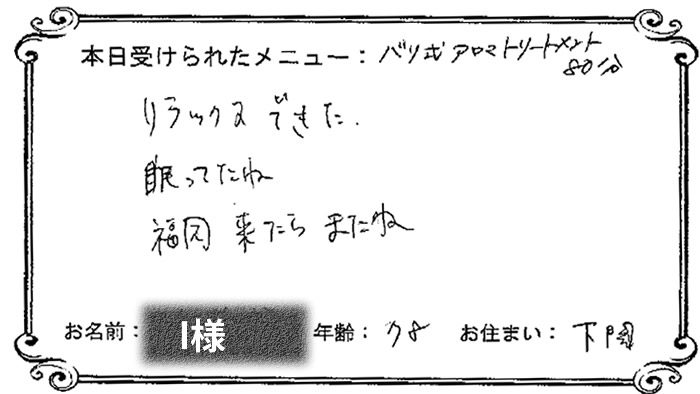 本日受けられたメニュー：バリ式アロマトリートメント
80分
リラックスできた.
眠ってたね
福岡 来たら またね
お名前： I様 年齢： 78 お住まい： 下関